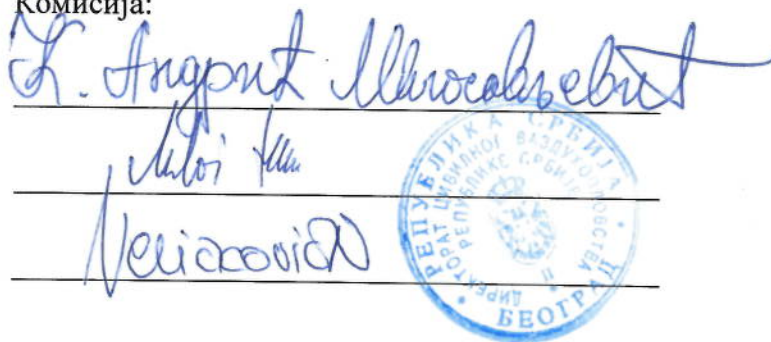 Комисија:
К. Андрић Милосављевић
Veličković N
РЕПУБЛИКА СРБИЈА
ДИРЕКТОРАТ ЦИВИЛНОГ ВАЗДУХОПЛОВСТВА
РЕПУБЛИКЕ СРБИЈЕ
II
БЕОГРАД